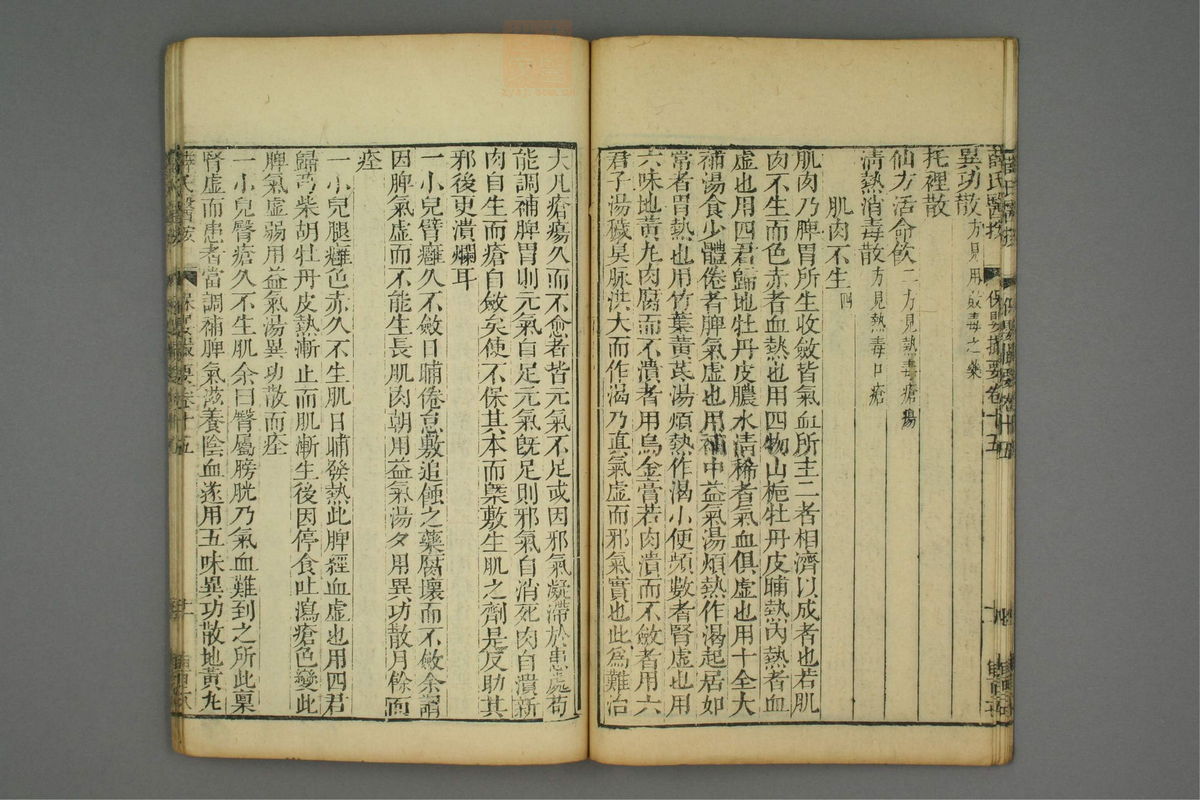 異功散方見用敗毒之藥
托裡散
仙方活命飲二方見熱毒瘡瘍
清熱消毒散方見熱毒口瘡
肌肉不生四
肌肉乃脾胃所生收斂皆氣血所主二者相濟以成者也若肌
肉不生而色赤者血熱也用四物山梔牡丹皮晡熱内熱者血
虛也用四君歸地牡丹皮膿水清稀者氣血俱虛也用十全大
補湯食少體倦者脾氣虛也用補中益氣湯煩熱作渴起居如
常者胃熱也用竹葉黃芪湯煩熱作渴小便頻數者腎虛也用
六味地黃丸肉腐而不潰者用烏金膏若肉潰而不斂者用六
君子湯穢臭脉洪大而作渴乃真氣虛而邪氣實也此爲難治
大凡瘡瘍久而不愈者皆元氣不足或因邪氣凝滯於患處苟
能調補脾胃則元氣自足元氣旣足則邪氣自消死肉自潰新
肉自生而瘡自斂矣使不保其本而槩敷生肌之劑是反助其
邪後更潰爛耳
一小兒臂癰久不斂日晡倦怠敷追蝕之藥腐壞而不斂余謂
因脾氣虛而不能生長肌肉朝用益氣湯夕用異功散月餘而
痊
一小兒腿癰色赤久不生肌日晡發熱此脾經血虛也用四君
歸芍柴胡牡丹皮熱漸止而肌漸生後因停食吐瀉瘡色變此
脾氣虛弱用益氣湯異功散而痊
一小兒臀瘡久不生肌余曰臀屬膀胱乃氣血難到之所此稟
腎虛而患者當調補脾氣滋養陰血遂用五味異功散地黃丸
薛氏醫按
保嬰撮要卷十五